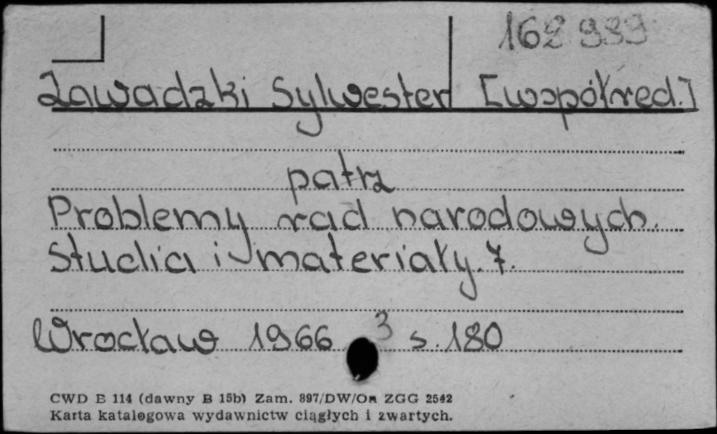 162 999
Zawadzki Sylwester [współred.]
patrz
Problemy rad narodowych.
Studia i materiały. 7.
Wrocław 1966 3 s. 180
CWD E 114 (dawny B 15b) Zam. 897/DW/On ZGG 2542
Karta katalogowa wydawnictw ciągłych i zwartych.